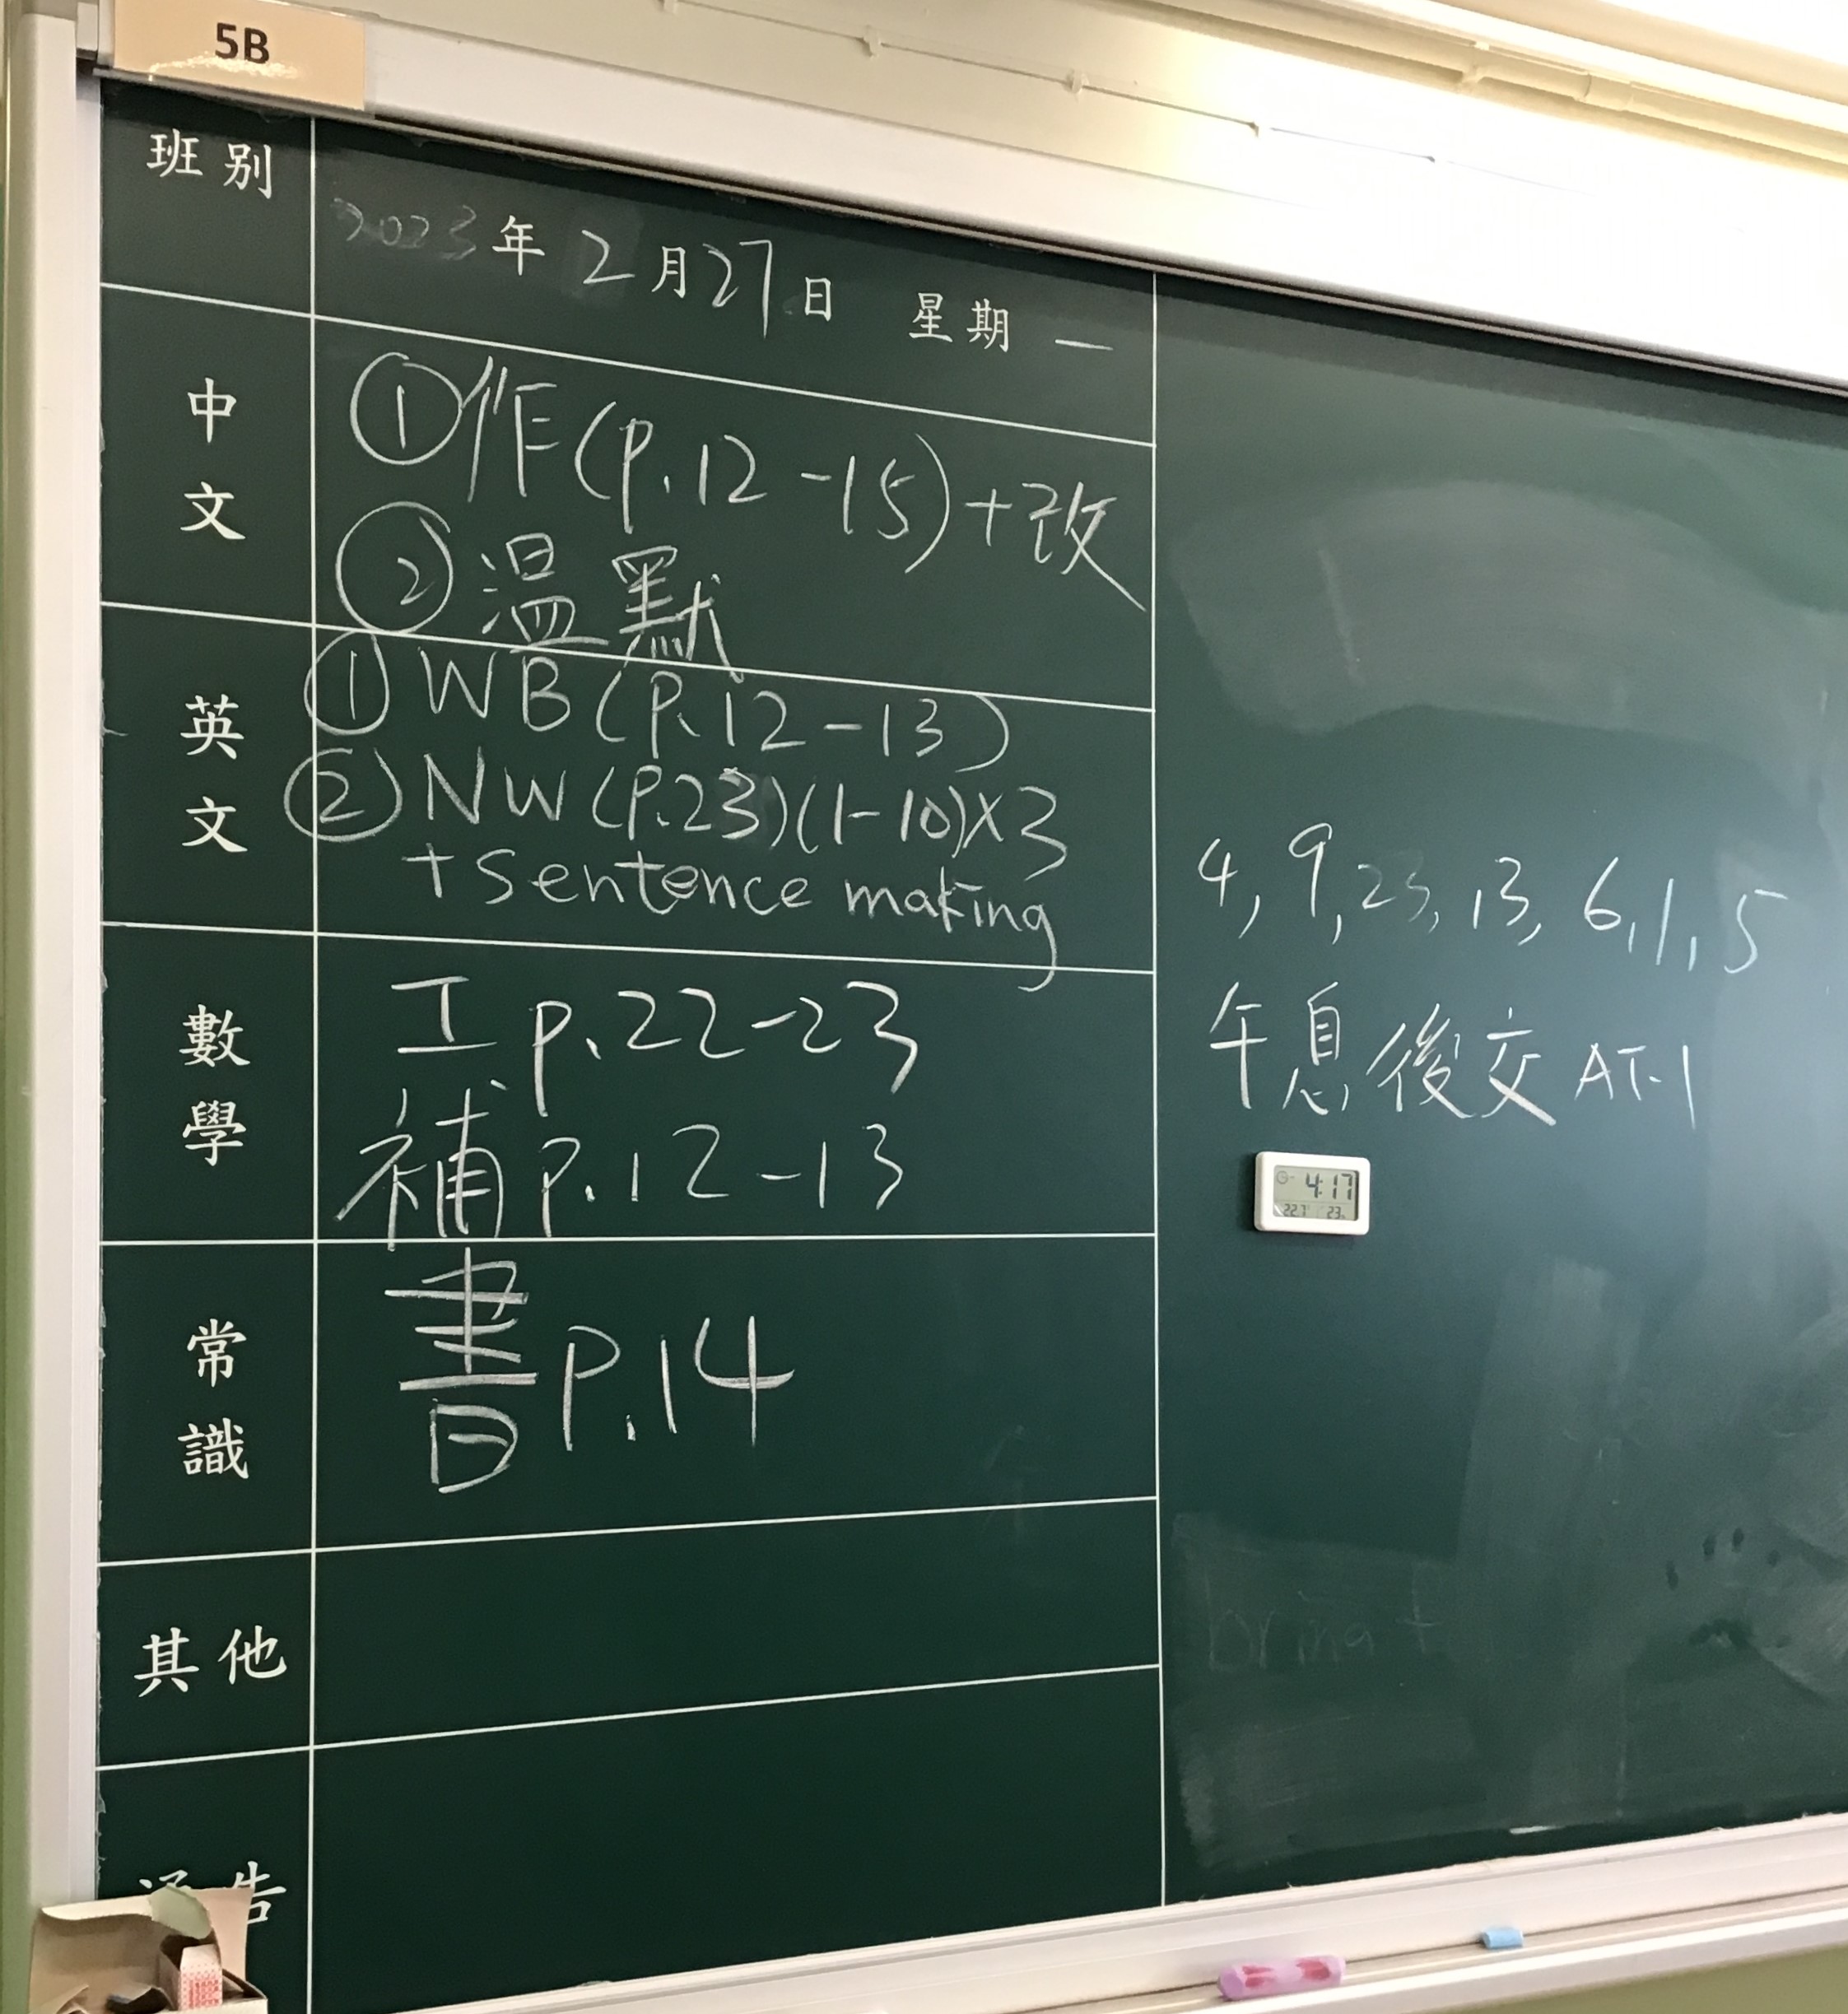 5B
班別
2023年2月27日 星期一
中文
①作(p.12-15)+改
②溫默
英文
①WB(P.12-13)
②NW(P.23)(1-10)×3
+sentence making
數學
工 p.22-23
補 p.12-13
常識
書 p.14
其他
告
4,9,23,13,6,1,5
午息後交 AT-1
4:17
22.7° 23%